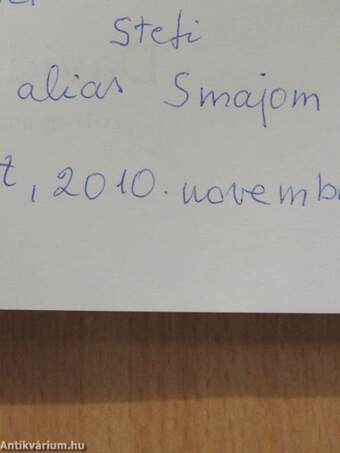 Stefi
alias Smajom
t, 2010. novemb
Antikvárium.hu